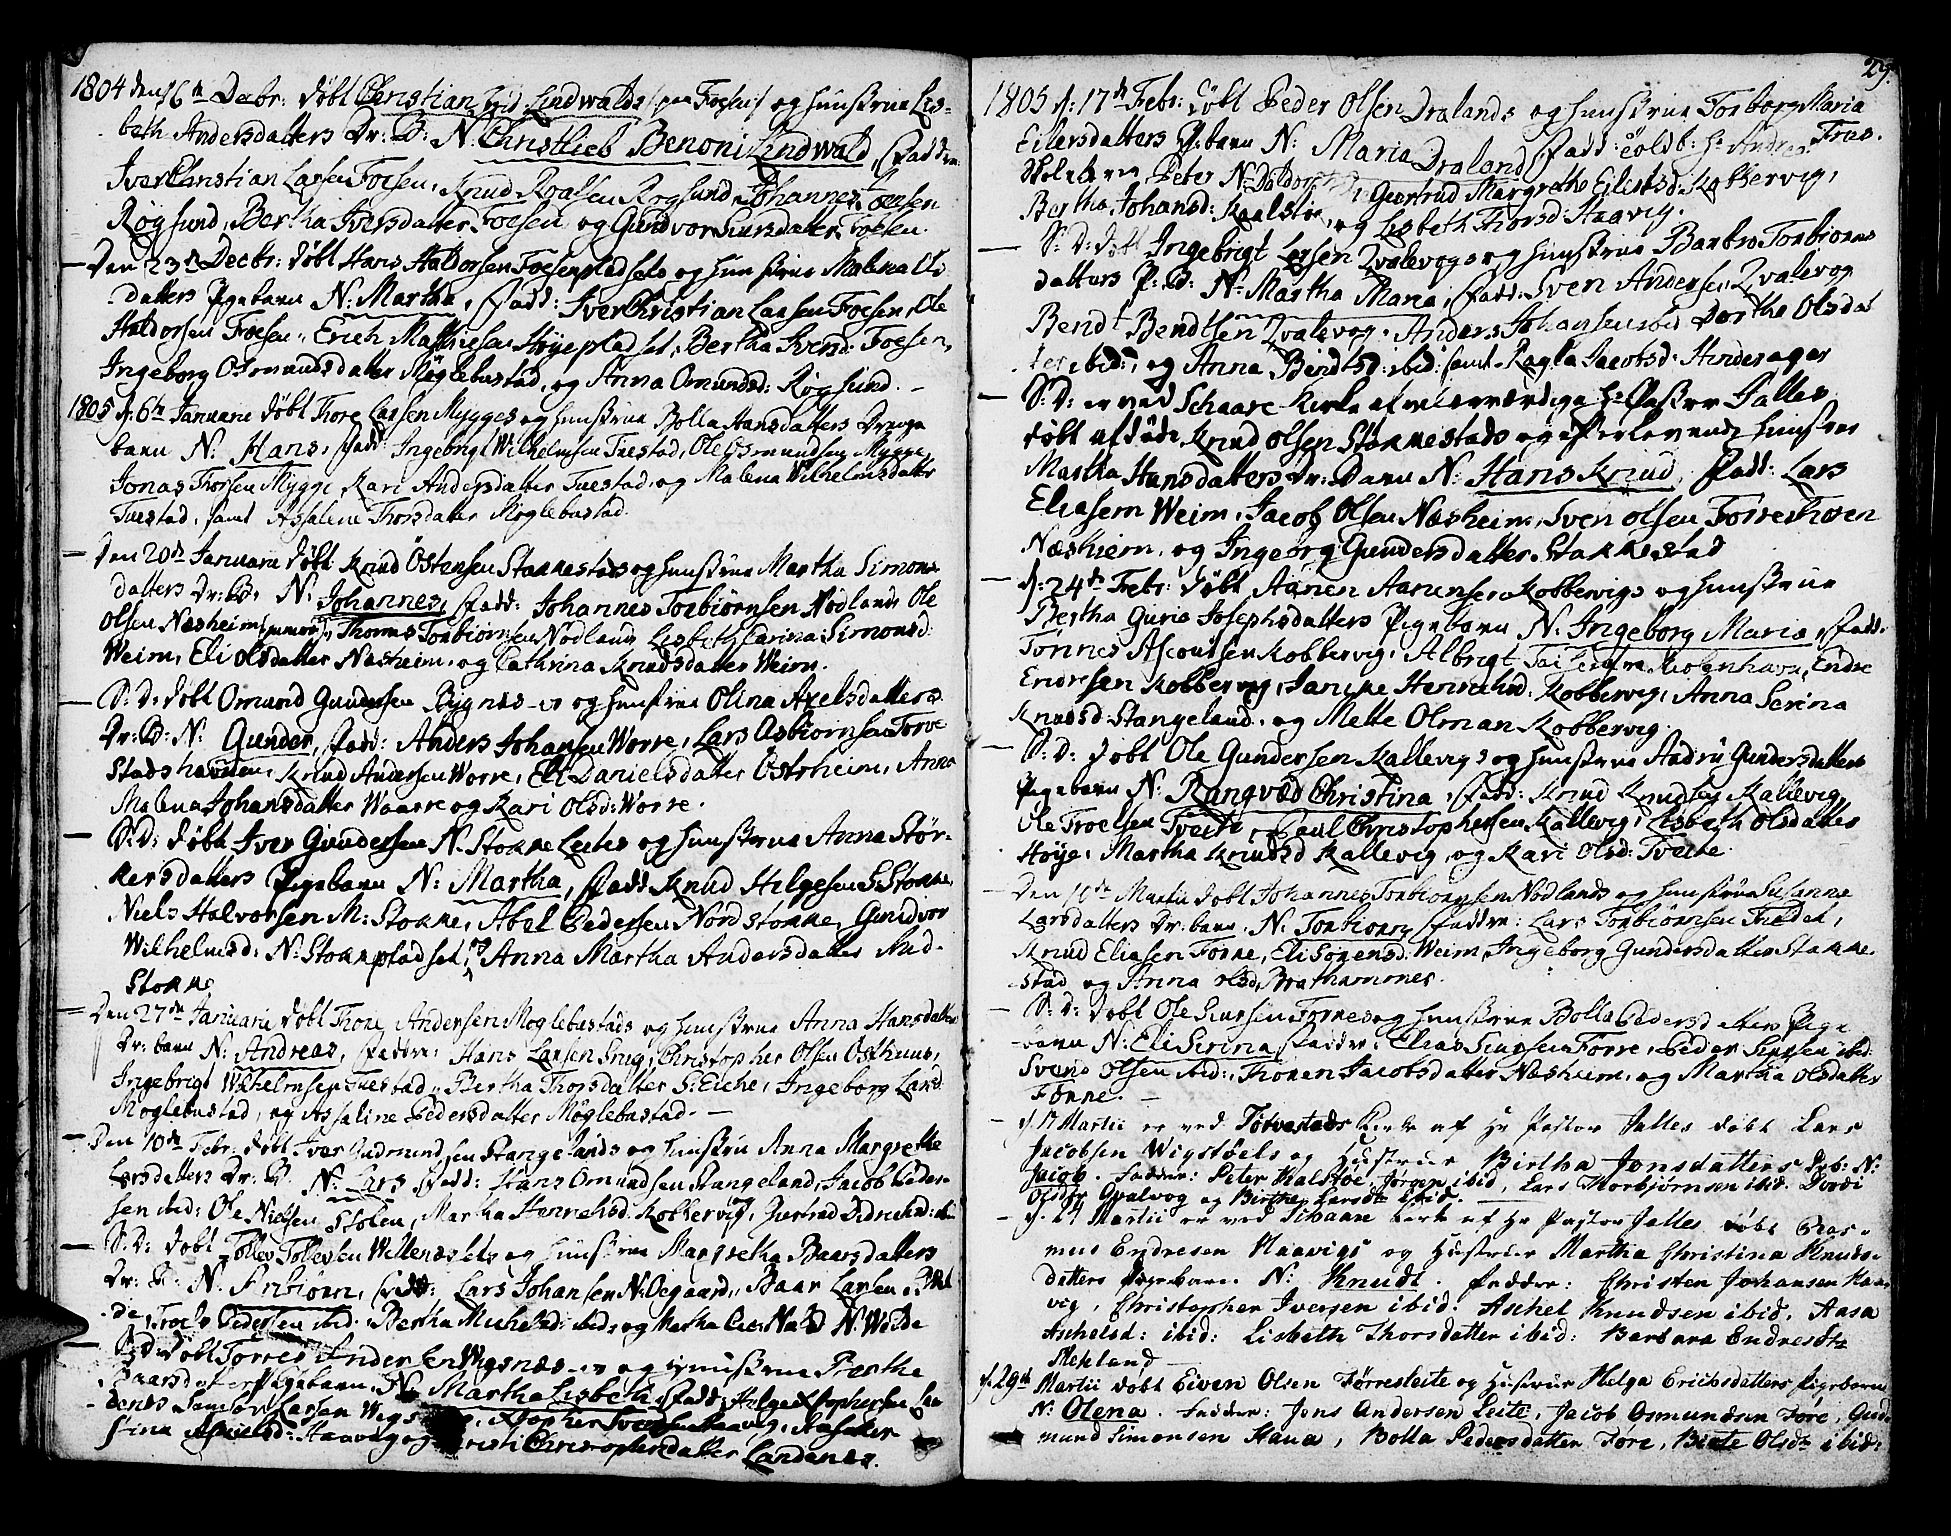 1804 den 16de Decbr: døbt Christian Lindwalds og Hustrue Lis-
beth Andersdatters Dr: B: N. Christlieb Benoni Lindwald, Fadd:
Iver Christian Larsen Foesen, Knud Roalsen Rogsund, Johannes Foesen
Røgsund, Bertha Iversdatter Foesen og Gundvor Foesen.
— Den 23de Decbr: døbt Hans Haldorsen Foesenpladsets og Hustrue Malena Ols
datters Pigebarn N: Martha, Fadd: Iver Christian Larsen Foesen, Ole
Haldorsen Foesen, Erich Mathiesen Høyepladset, Bertha Iversd: Foesen,
Ingeborg Osmundsdatter Møglebustad, og Anna Omunds: Røgsund. —
1805 d: 6te Januarii døbt Thore Larsen Mygges og Hustrue Bolla Hansdatters Drenge
barn N. Hans, Fadd: Ingebrgt Wilhelmsen Tuestad, Ole Osmundsen Mygge,
Jonas Thorsen Mygge, Kari Andersdatter Tuestad, og Malena Wilhelmsdatter
Tuestad, samt Assalene Thorsdatter Møglebustad.
— Den 20de Januarii døbt Knud Østensen Stakkestads og Hustrue Martha Simons
datters Dr: B: N: Johannes, Fadd: Johannes Torbiørnsen Nodland, Ole
Olsen Næsheim, Thomas Torbiørnsen Nodland, Lisbeth Carina Simonsd:
Weim, Eli Olsdatter Næsheim, og Cathrina Knudsdatter Weim.
— S: D: døbt Omund Gundersen Bygnes og Hustrue Olina Axelsdatters
Dr: B: N: Gunder, Fadd: Anders Johansen Worre, Lars Asbiørnsen Torve
stadshavnen, Knud Andersen Worre, Eli Danielsdatter Østrheim, Anna
Malena Johansdatter Waarre og Kari Olsd: Worre.
— S: D: døbt Iver Gundersen N. Stokke Leetes og Hustrue Anna Stør-
kersdatters Pigebarn N: Martha, Fadd: Knud Helgesen S. Stokke,
Niels Halvorsen M: Stokke, Abel Pedersen Nordstokke, Gundvor
Wilhelmsd: N: Stokkepladset, og Anna Martha Andersdatter Mid-
Stokke
— Den 27de Januarii døbt Thore Andersen Møglebustads og Hustrue Anna Hansdatter
Dr: barn N: Andreas, Faddre: Hans Larsen Snug, Christopher Olsen Osthuus,
Ingebrigt Wilhelmsen Tuestad, Bertha Thorsdatter S: Eiche, Ingeborg Larsd:
Møglebustad, og Assaline Pedersdatter Møglebustad. —
— Den 10de Febr: døbt Iver Gudmundsen Stangelands og Hustru Anna Margrethe
Larsdatters Dr: B. N: Lars Fadd: Hans Omundsen Stangeland, Jacob Peder-
sen ibid: Ole Nielsen Stolen, Martha Henrichsd: Kobbervig, Giertrud Didrichsd: ibid
— S: D: døbt Tollev Tollevsen Wellenes og Hustrue Margretha Baarsdatters
Dr: B: N. Arbiørn, Fadd: Lars Johansen N: Øegaard, Baar Larsen
de, Troels Pedersen ibid: Bertha Michelsd: ibid: og Martha N. Weide
— S: D: døbt Torres Andersen Wigsnæs og Hustrue Berthe
Baarsdatters Pigebarn N. Martha Lisbeth, Fadd: Helge Xstophersen
Larsen Wigsnæs, Xstopher Haavig,
stina Haavig og Kristi Christophersdatter Landenes.

29.
1805 d: 17de Febr: døbt Peder Olsen Dralands og Hustrue Torborg Maria
Eilersdatters Pigebarn N: Maria Draland, Fadd: Hr Andreas
Peter Geertrud Margrethe Eilersd: Kobbervig,
Bertha Johansd: og Lisbeth Thorsd: Haavig.
— S: D: døbt Ingebrigt Larsen Qvalevogs og Hustrue Barbro Torbiørns
datters P: B: N: Martha Maria, Fadd: Sven Andersen Qvalevog
Bendt Bendtsen Qvalevog, Anders Johansen ibid Dortha Olsdat
ter ibid:, og Anna Bendtsd: ibid: samt Ragla Jacobsd: Hinderager
— S: D: er ved Schaare Kirke af velærværdige Hr Pastor Salles
døbt afdøde Knud Olsen Stokkestads og efterlevende Hustrue
Martha Hansdatters Dr: Barn N: Hans Knud, Fadd: Lars
Eliasen Weim, Jacob Olsen Næsheim, Sven Olsen Førre, Thoren
Næsheim, og Ingeborg Gundersdatter Stakkestad
— d: 24de Febr: døbt Aanen Aanensen Kobbervigs og Hustrue
Bertha Guria Josephsdatters Pigebarn N. Ingeborg Maria, Fadd:
Tønnes Ascoutsen Kobbervig, Albrigt Kiøbenhavn, Endre
Endresen Kobbervig, Janike Henrichsd: Kobbervig, Anna Serina
Knudsd: Stangeland, og Mette Olman Kobbervig.
— S: D: døbt Ole Gundersen Kallevigs og Hustrue Aadru Gundersdatters
Pigebarn N: Rangvæd Christina, Fadd: Knud Knudsen Kallevig,
Ole Troelsen Tveite, Paul Christophersen Kallevig, Lisbeth Olsdatter
Høye, Martha Knudsd Kallevig, og Kari Olsd: Tveite.
Den 10de Martii døbt Johannes Torbiørnsen Nodlands og Hustrue Susanna
Larsdatters Dr: barn N. Torbiørn, Faddre: Lars Torbiørnsen
Knud Eliasen Førre, Eli Sørensd: Weim, Ingeborg Gundersdatter Stakke-
stad og Anna Olsd: Brathammer.
— S: D: døbt Ole Siursen Førres og Hustrue Bolla Pedersdatters Pige
barn N: Eli Serina, Faddre: Elias Siursen Førre, Peder Siursen ibid:
Svend Olsen ibid:, Thoren Jacobsdatter Næsheim, og Martha Olsdatter
Førre. —
— d. 17 Martii er ved Torvestads Kirke af Hr Pastor Salles døbt Lars
Jacobsen Wigstøels og Hustrue Birtha Jonsdatters Drb: N:
Jacob. Faddere: Peter Kalstøe, Jørgen ibid, Lars Thorbjørnsen ibid. Dordi
Olsdtr Qvalvog og Birthe Larsdtr ibid.
— d. 24 Martii er ved Schaare Kirke af Hr Pastor Salles døbt Ras-
mus Endresen Haavigs og Hustrue Martha Christina Knuds-
datters Pigebarn. N: Knudt. Faddere: Christen Johansen Haa
vig, Christopher Iversen ibid: Aschel Knudsen ibid. Aasa
Aschelsd: ibid: Lisbeth Thorsdatter ibid: Barbara Endresdtr
Mehland —
d. 29de Martii døbt Eiven Olsen Førresleite og Hustrue Helga Erichsdatters Pigebarn
N: Olena. Faddere: Jens Andersen Leite, Jacob Osmundsen Føre, Gud-
mund Simonsen Hana, Bolla Pedersdatter Føre, Birte Olsdtr ibid: